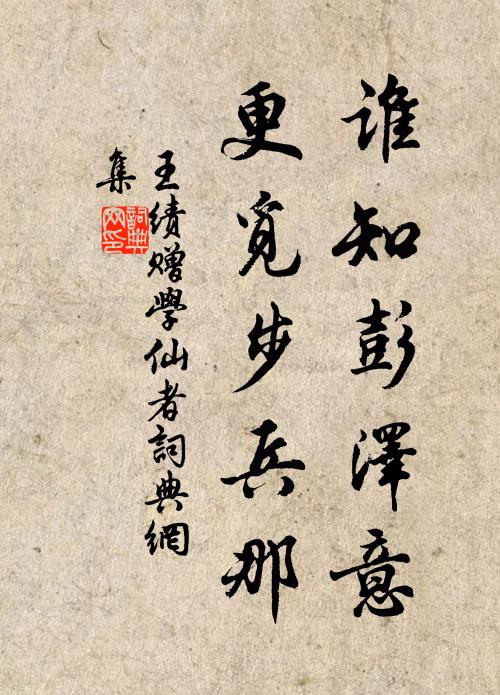 谁知彭澤意
更覓步兵那
王绩赠學仙者詞典網
集
詞典
网印